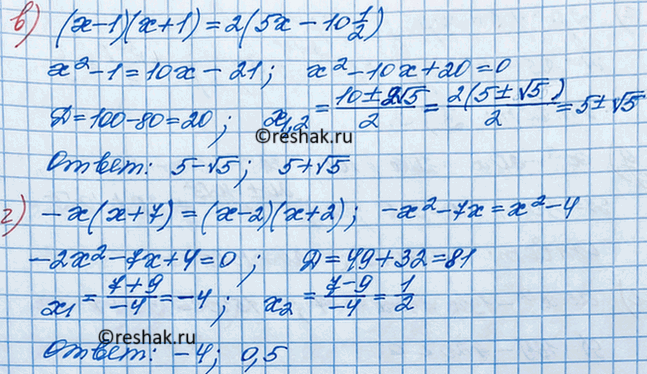 в) (x-1)(x+1)=2(5x-10 1/2)
x²-1=10x-21; x²-10x+20=0
Д=100-80=20; x₁,₂ = (10±2√5)/2 = (2(5±√5))/2 = 5±√5
©reshak.ru
Ответ: 5-√5; 5+√5
г) -x(x+7)=(x-2)(x+2); -x²-7x=x²-4
-2x²-7x+4=0; Д=49+32=81
x₁ = (7+9)/-4 = -4; x₂ = (7-9)/-4 = 1/2
©reshak.ru
Ответ: -4; 0,5